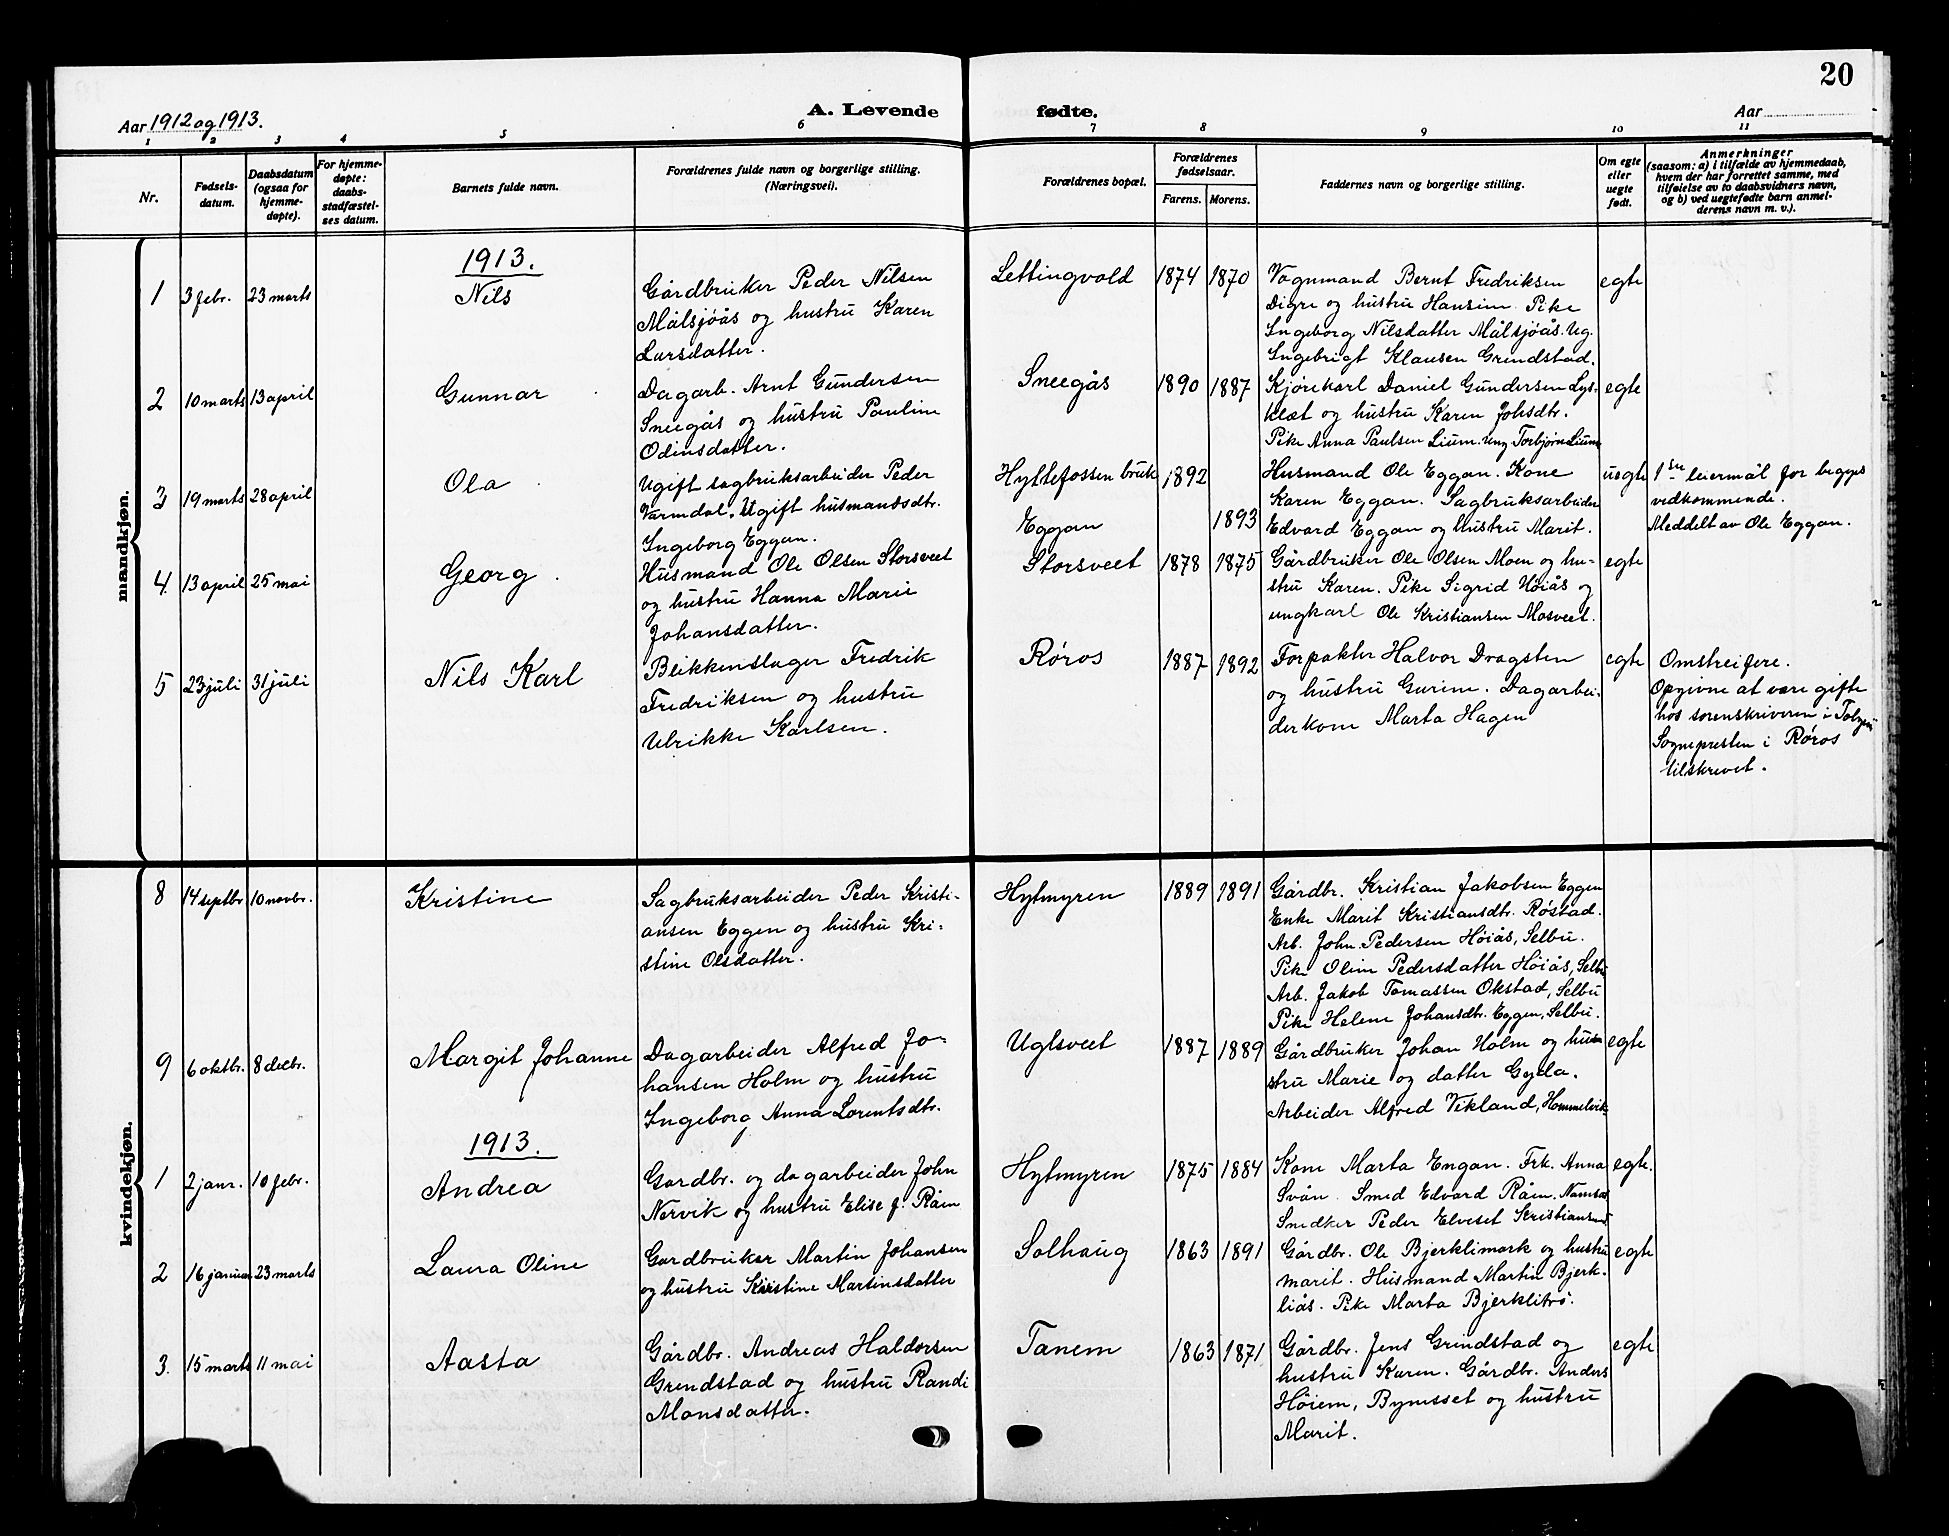 20
Aar 1912 og 1913.
A. Levende fødte.
Aar
1 2 3 4 5 6 7 8 9 10 11
Nr.
Fødsels-
datum.
Daabsdatum
(ogsaa for
hjemme-
døpte).
For hjemme-
døpte:
daabs-
stadfæstel-
ses datum.
Barnets fulde navn.
Forældrenes fulde navn og borgerlige stilling.
(Næringsvei).
Forældrenes bopæl.
Forældrenes
fødselsaar.
Farens. Morens.
Faddernes navn og borgerlige stilling.
Om egte
eller
uegte
født.
Anmerkninger
(saasom: a) i tilfælde av hjemmedaab,
hvem der har forrettet samme, med
tilføielse av to daabsvidners navn,
og b) ved uegtefødte barn anmel-
derens navn m. v.).
mandkjøn.
1913.
1 3 febr. 23 marts
Nils
Gårdbruker Peder Nilsen
Målsjøås og hustru Karen
Larsdatter.
Lettingvold 1874 1870
Vognmand Bernt Fredriksen
Digre og hustru Hansine. Pike
Ingeborg Nilsdatter Målsjøås. Ug.
Ingebrigt Klausen Grendstad.
egte
2 10 marts 13 april
Gunnar
Dagarb. Arnt Gundersen
Sneegås og hustru Pauline
Odinsdatter.
Sneegås 1890 1887
Kjørekarl Daniel Gundersen Lys-
klæt og hustru Karen Johsdtr.
Pike Anna Paulsen Lium. Ung Torbjørn Lium
egte
3 19 marts 28 april
Ola
Ugift sagbruksarbeider Peder
Værmdal. Ugift husmandsdtr.
Ingeborg Eggan.
Hyttefossen bruk 1892
Eggan 1893
Husmand Ole Eggan. Kone
Karen Eggan. Sagbruksarbeider
Edvard Eggan og hustru Marit.
uegte
1ste leiermål for begges
vedkommende.
Meddelt av Ole Eggan.
4. 13 april 25 mai
Georg
Husmand Ole Olsen Storsveet
og hustru Hanna Marie
Johansdatter.
Storsveet 1878 1875
Gårdbruker Ole Olsen Moen og hu-
stru Karen. Pike Sigrid Høiås og
ungkarl Ole Kristiansen Mosveet.
egte
5 23 juli 31 juli
Nils Karl
Blikkenslager Fredrik
Fredriksen og hustru
Ulrikke Karlsen.
Røros 1887 1892
Forpakter Halvor Dragsten
og hustru Gurine. Dagarbei-
derkone Marta Hagen
egte
Omstreifere.
Opgivne at være gifte
hos sorenskriveren i
Sognepresten i Røros
tilskrevet.
kvindekjøn.
8 14 septbr 10 novbr.
Kristine
Sagbruksarbeider Peder Kristi-
ansen Eggen og hustru Kri-
stine Olsdatter.
Hytmyren 1889 1891
Gårdbr. Kristian Jakobsen Eggen
Enke Marit Kristiansdtr. Røstad.
Arb. John Pedersen Høiås, Selbu.
Pike Oline Pedersdatter Høiås, Selbu
Arb. Jakob Tomassen Okstad, Selbu
Pike Helene Johansdtr. Eggen, Selbu.
9 6 oktbr. 8 decbr.
Margit Johanne
Dagarbeider Alfred Jo-
hansen Holm og hustru
Ingeborg Anna Lorentsdtr.
Uglsveet 1887 1889
Gårdbruker Johan Holm og hu-
stru Marie og datter Gyda.
Arbeider Alfred Vikland, Hommelvik
egte
1913.
1 2 janr. 10 febr.
Andrea
Gardbr. og dagarbeider John
Nervik og hustru Elise f. Råen
Hytmyren 1875 1884
Kone Marta Engan. Frk. Anna
Svån. Smed Edvard Råen. Namsos
Snedker Peder Elveset Kristiansund
egte.
2 16 januar 23 marts
Laura Oline
Gardbruker Martin Johansen
og hustru Kristine Martinsdatter
Solhaug 1863 1891
Gårdbr. Ole Bjerklimark og hustru
Marit. Husmand Martin Bjerk-
liås. Pike Marta Bjerklitrø.
egte
3. 15 marts 11 mai
Aasta
Gårdbr. Andreas Haldorsen
Grendstad og hustru Randi
Monsdatter.
Tanem 1863 1871
Gårdbr. Jens Grendstad og
hustru Karen. Gårdbr. Anders
Høiem, Bynesset og hustru
Marit.
egte